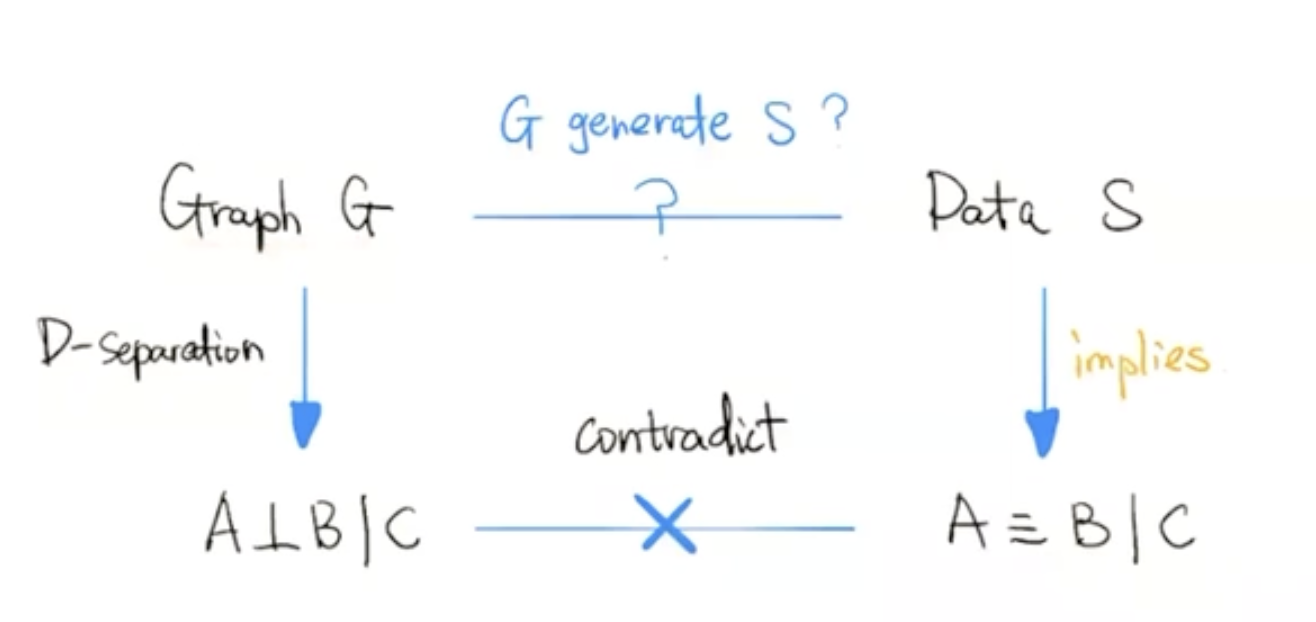 G generate S ?
Graph G
?
Data S
D-separation
implies
contradict
A⊥B|C
A ≡ B | C